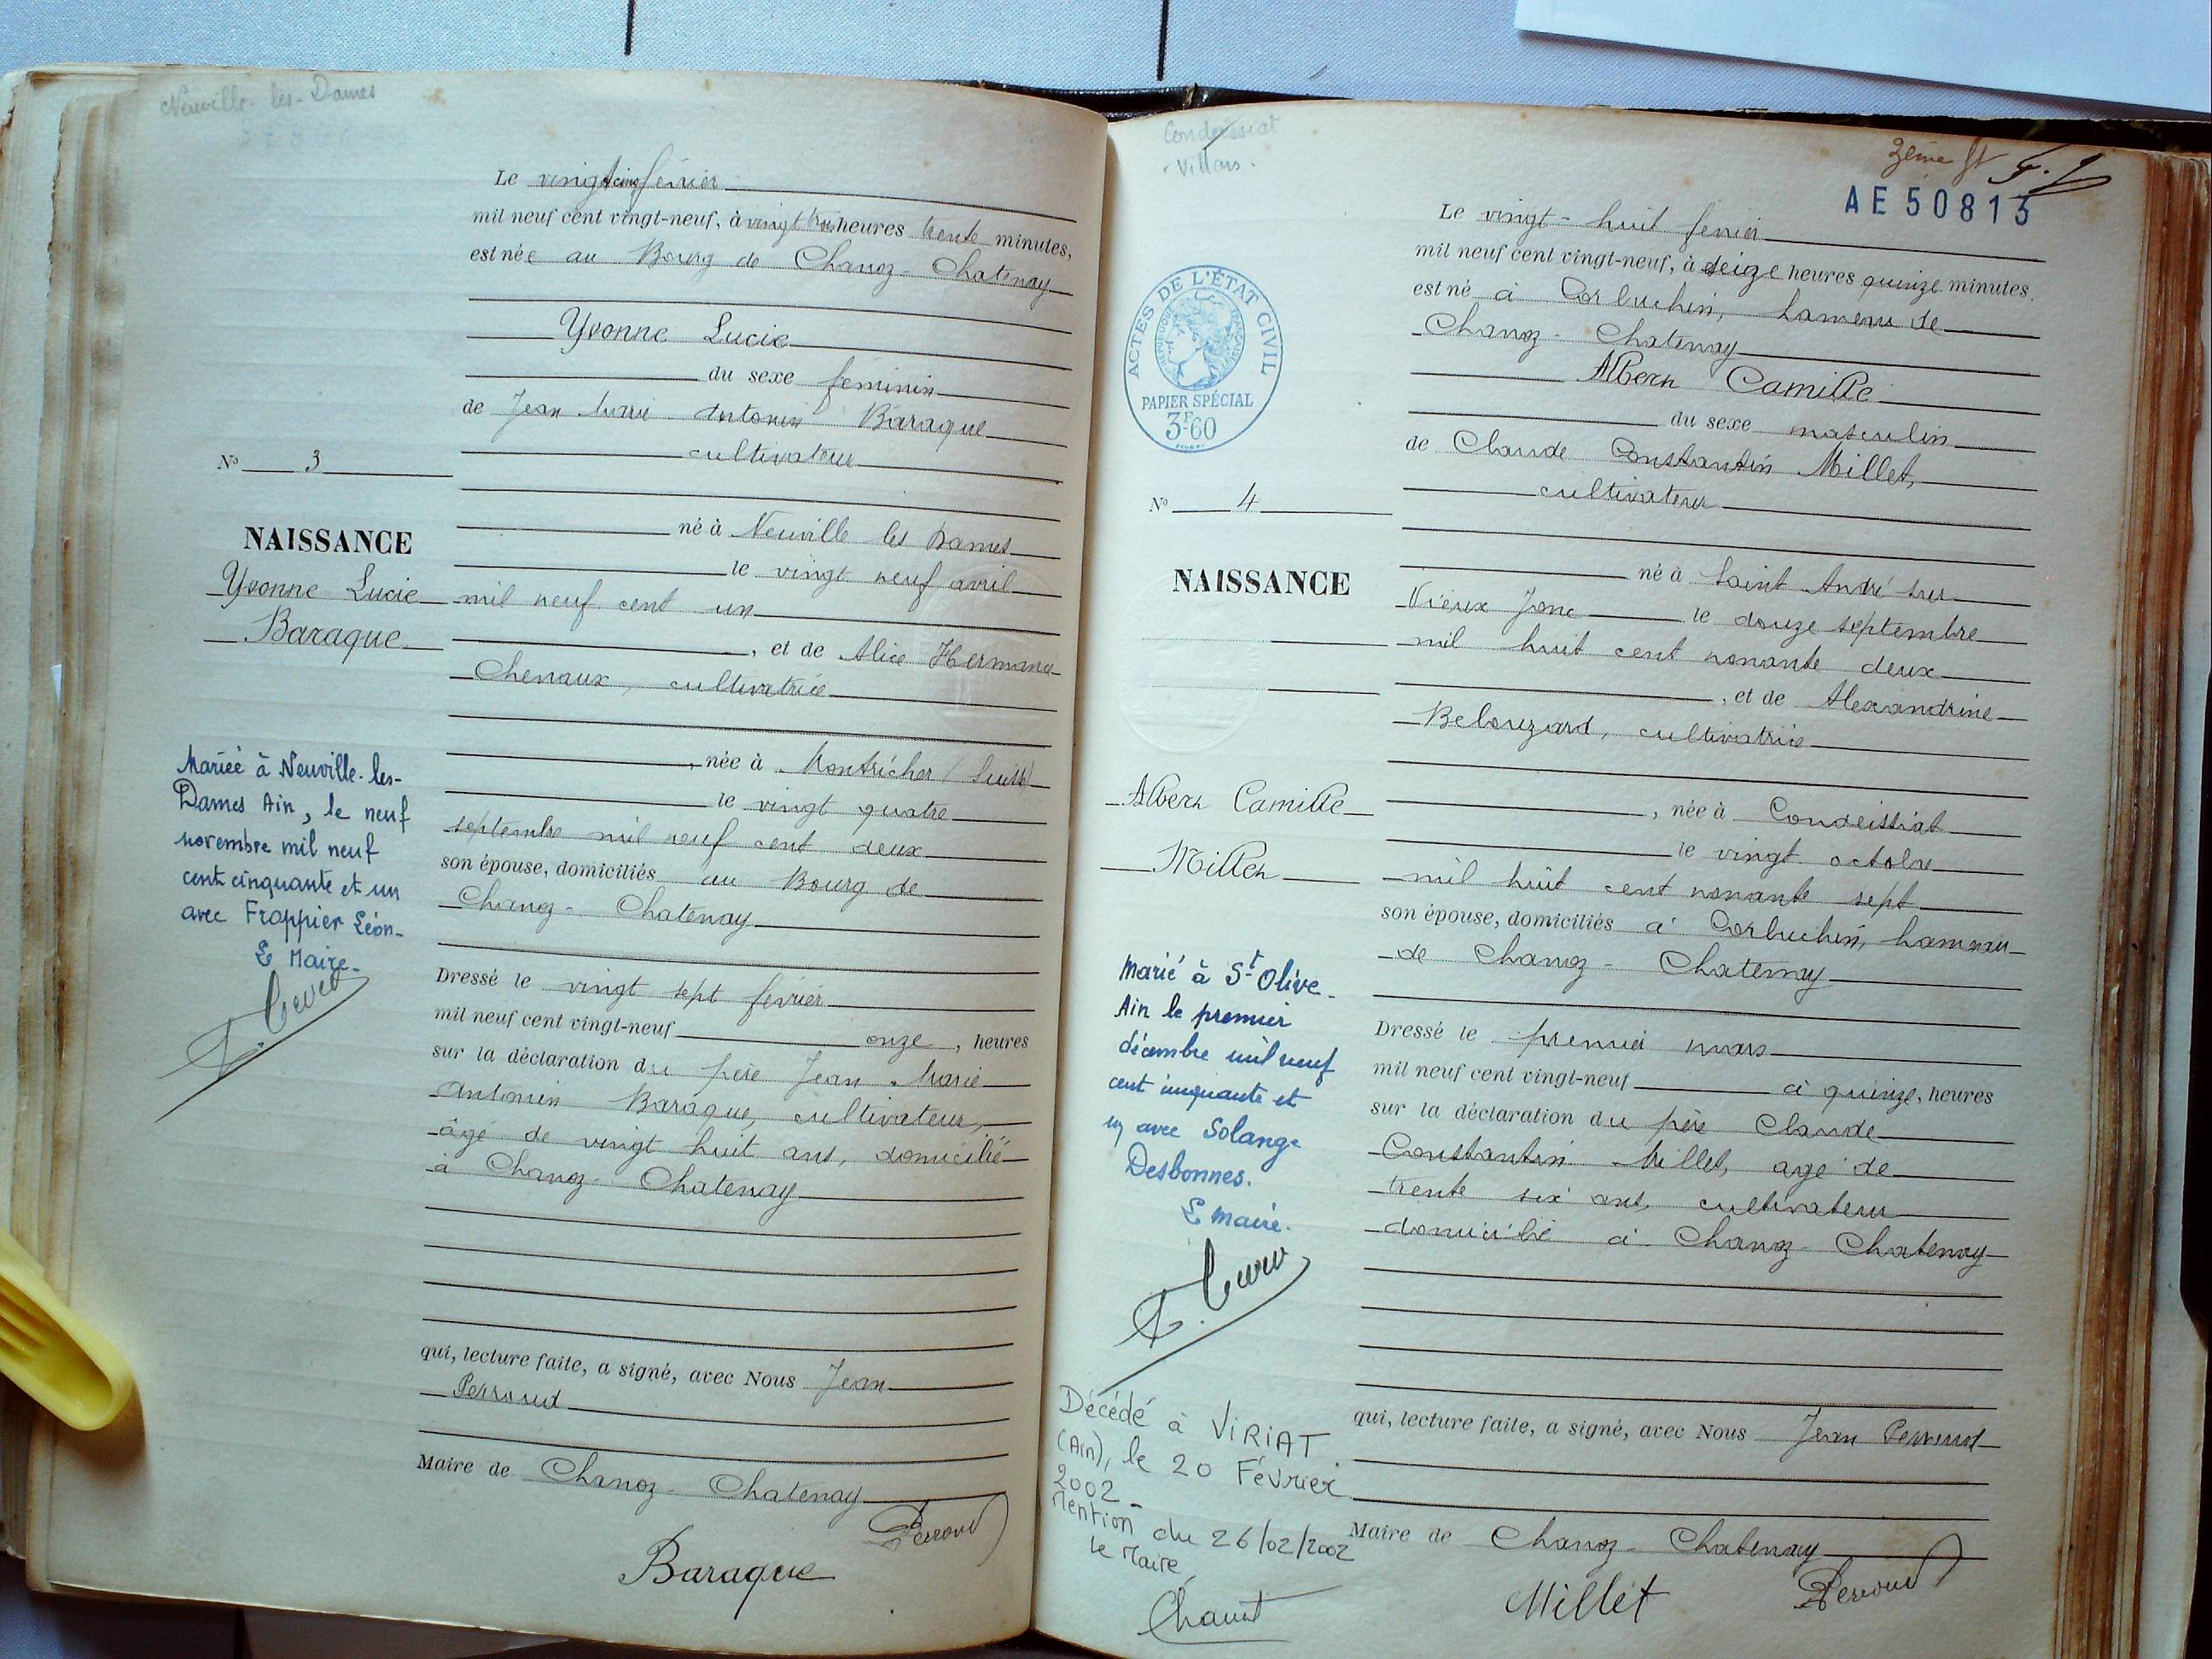 Neuville-les-Dames
Le vingt cinq février
mil neuf cent vingt-neuf, à vingt trois heures trente minutes,
est née au Bourg de Chanoz-Chatenay
Yvonne Lucie
du sexe féminin
de Jean Marie Antonin Baraque
cultivateur
N° 3
né à Neuville les Dames
NAISSANCE
le vingt neuf avril
Yvonne Lucie
mil neuf cent un
Baraque
, et de Alice Hermance
Chenaux, cultivatrice
, née à Montricher (Suisse)
le vingt quatre
septembre mil neuf cent deux
son épouse, domiciliés au Bourg de
Chanoz-Chatenay
Mariée à Neuville-les-
Dames Ain, le neuf
novembre mil neuf
cent cinquante et un
avec Frappier Léon-
Le Maire-
Dressé le vingt sept février
mil neuf cent vingt-neuf onze, heures
sur la déclaration du père Jean Marie
Antonin Baraque, cultivateur,
âgé de vingt huit ans, domicilié
à Chanoz-Chatenay
qui, lecture faite, a signé, avec Nous Jean
Perroud
Maire de Chanoz-Chatenay
Perroud
Baraque
Condeissiat
Villars.
3ème
AE50813
ACTES DE L'ÉTAT CIVIL
RÉPUBLIQUE FRANÇAISE
PAPIER SPÉCIAL
3F60
Le vingt-huit février
mil neuf cent vingt-neuf, à seize heures quinze minutes.
est né à Corbuchin, hameau de
Chanoz-Chatenay
Albert Camille
du sexe masculin
de Claude Constantin Millet,
cultivateur
N° 4
né à Saint André sur
NAISSANCE
Vieux Jonc le douze septembre
mil huit cent nonante deux
, et de Alexandrine
Belouzard, cultivatrice
Albert Camille
Millet
, née à Condeissiat
le vingt octobre
mil huit cent nonante sept
son épouse, domiciliés à Corbuchin, hameau
de Chanoz-Chatenay
Marié à St Olive-
Ain le premier
décembre mil neuf
cent cinquante et
un avec Solange
Desbonnes.
Le maire.
Dressé le premier mars
mil neuf cent vingt-neuf à quinze, heures
sur la déclaration du père Claude
Constantin Millet, agé de
trente six ans, cultivateur
domicilié à Chanoz-Chatenay
Décédé à VIRIAT
(Ain), le 20 Février
2002-
Mention du 26/02/2002
Le Maire
qui, lecture faite, a signé, avec Nous Jean Perroud
Maire de Chanoz-Chatenay
Millet
Perroud